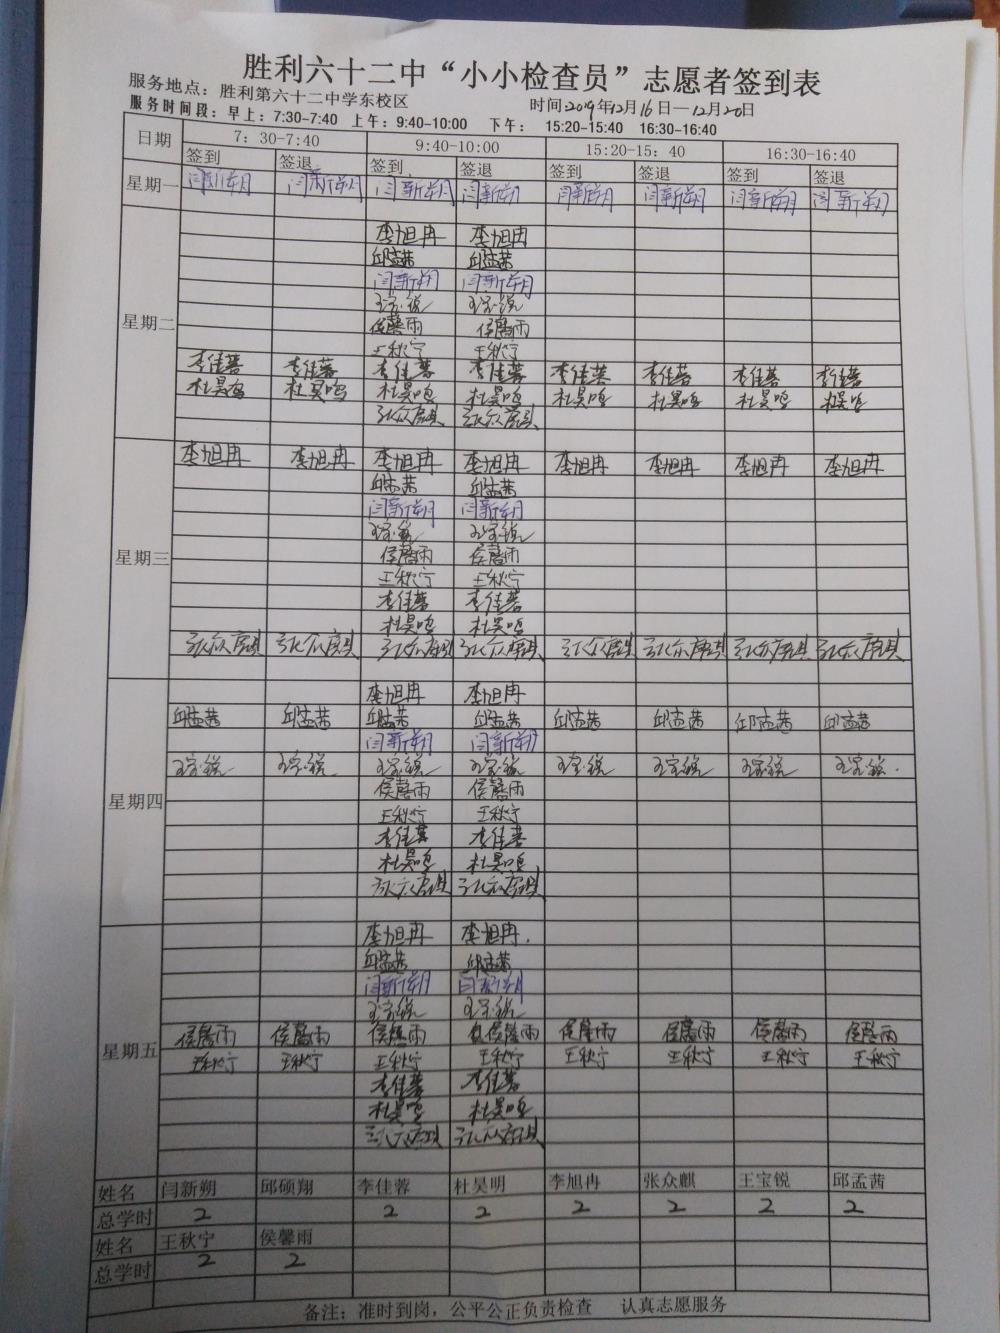 胜利六十二中“小小检查员”志愿者签到表
服务地点：胜利第六十二中学东校区 时间2019年12月16日—12月20日
服务时间段：早上：7:30-7:40 上午：9:40-10:00 下午： 15:20-15:40 16:30-16:40
日期 7：30-7:40 9:40-10:00 15:20-15：40 16:30-16:40
签到 签退 签到 签退 签到 签退 签到 签退
星期一 闫新朔 闫新朔 闫新朔 闫新朔 闫新朔 闫新朔 闫新朔 闫新朔
李旭冉 李旭冉
邱孟茜 邱孟茜
闫新朔 闫新朔
王宝锐 王宝锐
星期二 侯馨雨 侯馨雨
王秋宁 王秋宁
李佳蓉 李佳蓉 李佳蓉 李佳蓉 李佳蓉 李佳蓉 李佳蓉 李佳蓉
杜昊鸣 杜昊鸣 杜昊鸣 杜昊鸣 杜昊鸣 杜昊鸣 杜昊鸣 杜昊鸣
张众麒 张众麒
李旭冉 李旭冉 李旭冉 李旭冉 李旭冉 李旭冉 李旭冉 李旭冉
邱孟茜 邱孟茜
闫新朔 闫新朔
王宝锐 王宝锐
星期三 侯馨雨 侯馨雨
王秋宁 王秋宁
李佳蓉 李佳蓉
杜昊鸣 杜昊鸣
张众麒 张众麒 张众麒 张众麒 张众麒 张众麒 张众麒 张众麒
李旭冉 李旭冉
邱孟茜 邱孟茜 邱孟茜 邱孟茜 邱孟茜 邱孟茜 邱孟茜 邱孟茜
闫新朔 闫新朔
王宝锐 王宝锐 王宝锐 王宝锐 王宝锐 王宝锐 王宝锐 王宝锐
星期四 侯馨雨 侯馨雨
王秋宁 王秋宁
李佳蓉 李佳蓉
杜昊鸣 杜昊鸣
张众麒 张众麒
李旭冉 李旭冉
邱孟茜 邱孟茜
闫新朔 闫新朔
王宝锐 王宝锐
星期五 侯馨雨 侯馨雨 侯馨雨 侯馨雨 侯馨雨 侯馨雨 侯馨雨 侯馨雨
王秋宁 王秋宁 王秋宁 王秋宁 王秋宁 王秋宁 王秋宁 王秋宁
李佳蓉 李佳蓉
杜昊鸣 杜昊鸣
张众麒 张众麒
姓名 闫新朔 邱硕翔 李佳蓉 杜昊明 李旭冉 张众麒 王宝锐 邱孟茜
总学时 2 2 2 2 2 2 2
姓名 王秋宁 侯馨雨
总学时 2 2
备注：准时到岗，公平公正负责检查 认真志愿服务